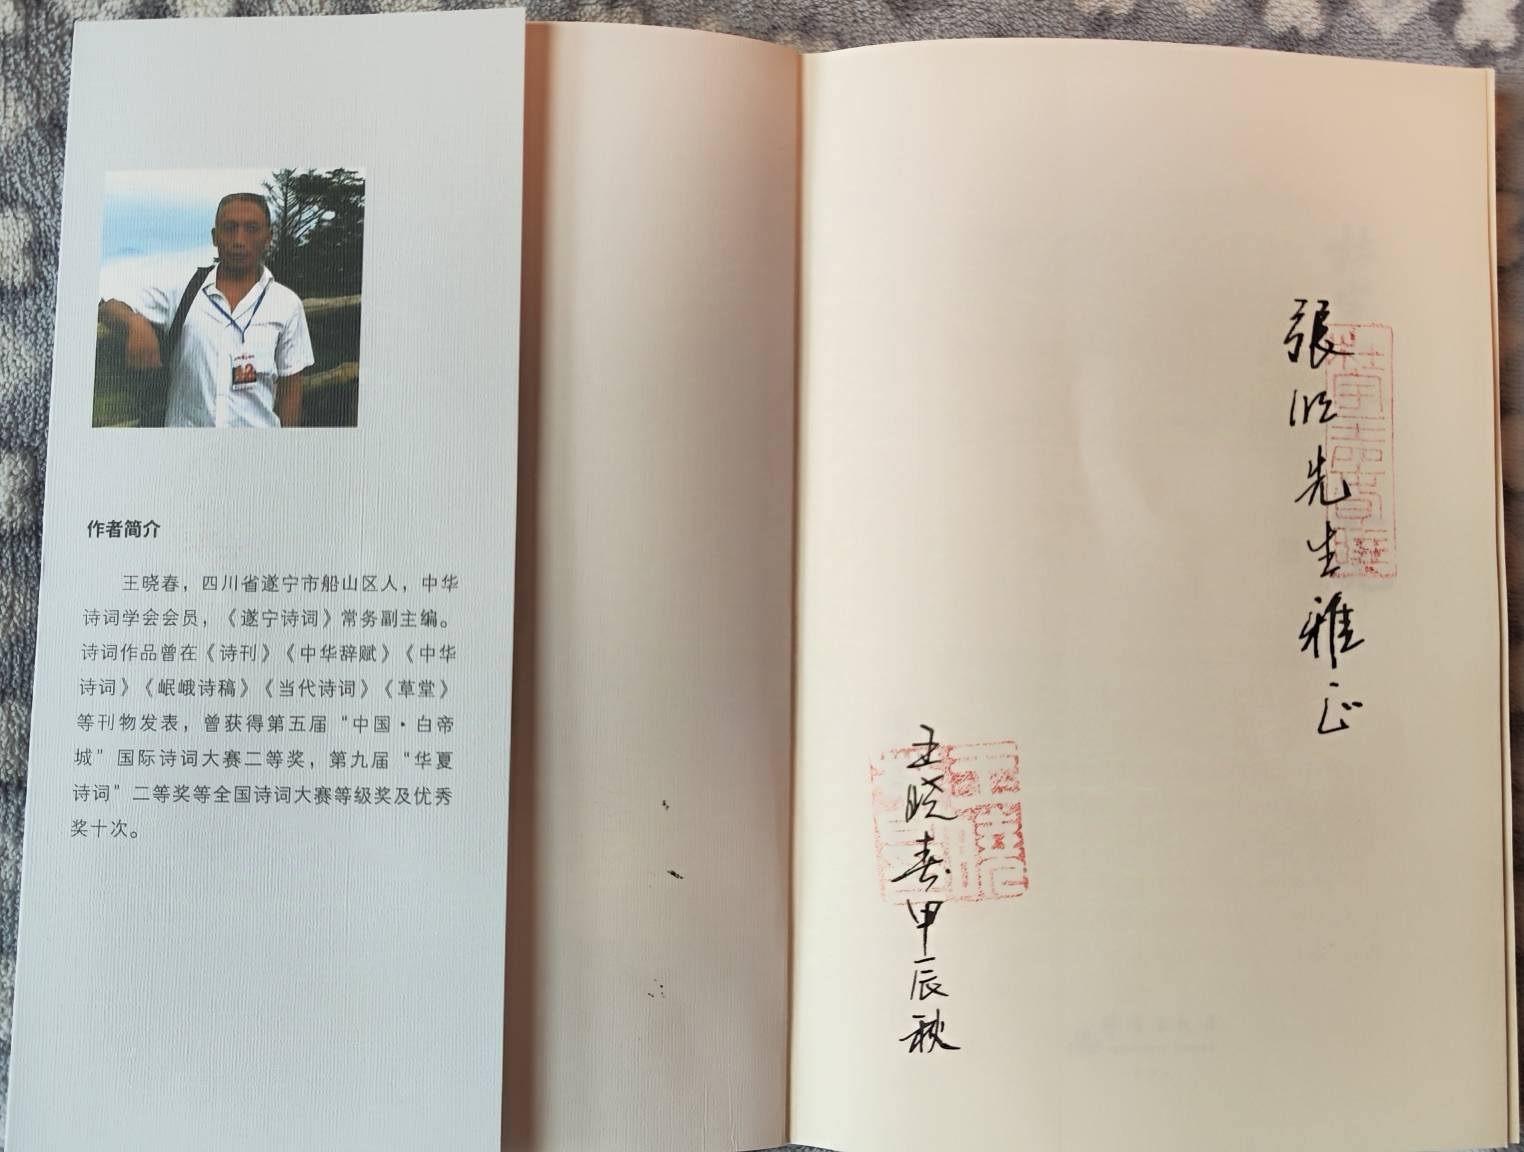 作者简介
王晓春，四川省遂宁市船山区人，中华
诗词学会会员，《遂宁诗词》常务副主编。
诗词作品曾在《诗刊》《中华辞赋》《中华
诗词》《岷峨诗稿》《当代诗词》《草堂》
等刊物发表，曾获得第五届“中国·白帝
城”国际诗词大赛二等奖，第九届“华夏
诗词”二等奖等全国诗词大赛等级奖及优秀
奖十次。
張 先生雅正
王晓春甲辰秋